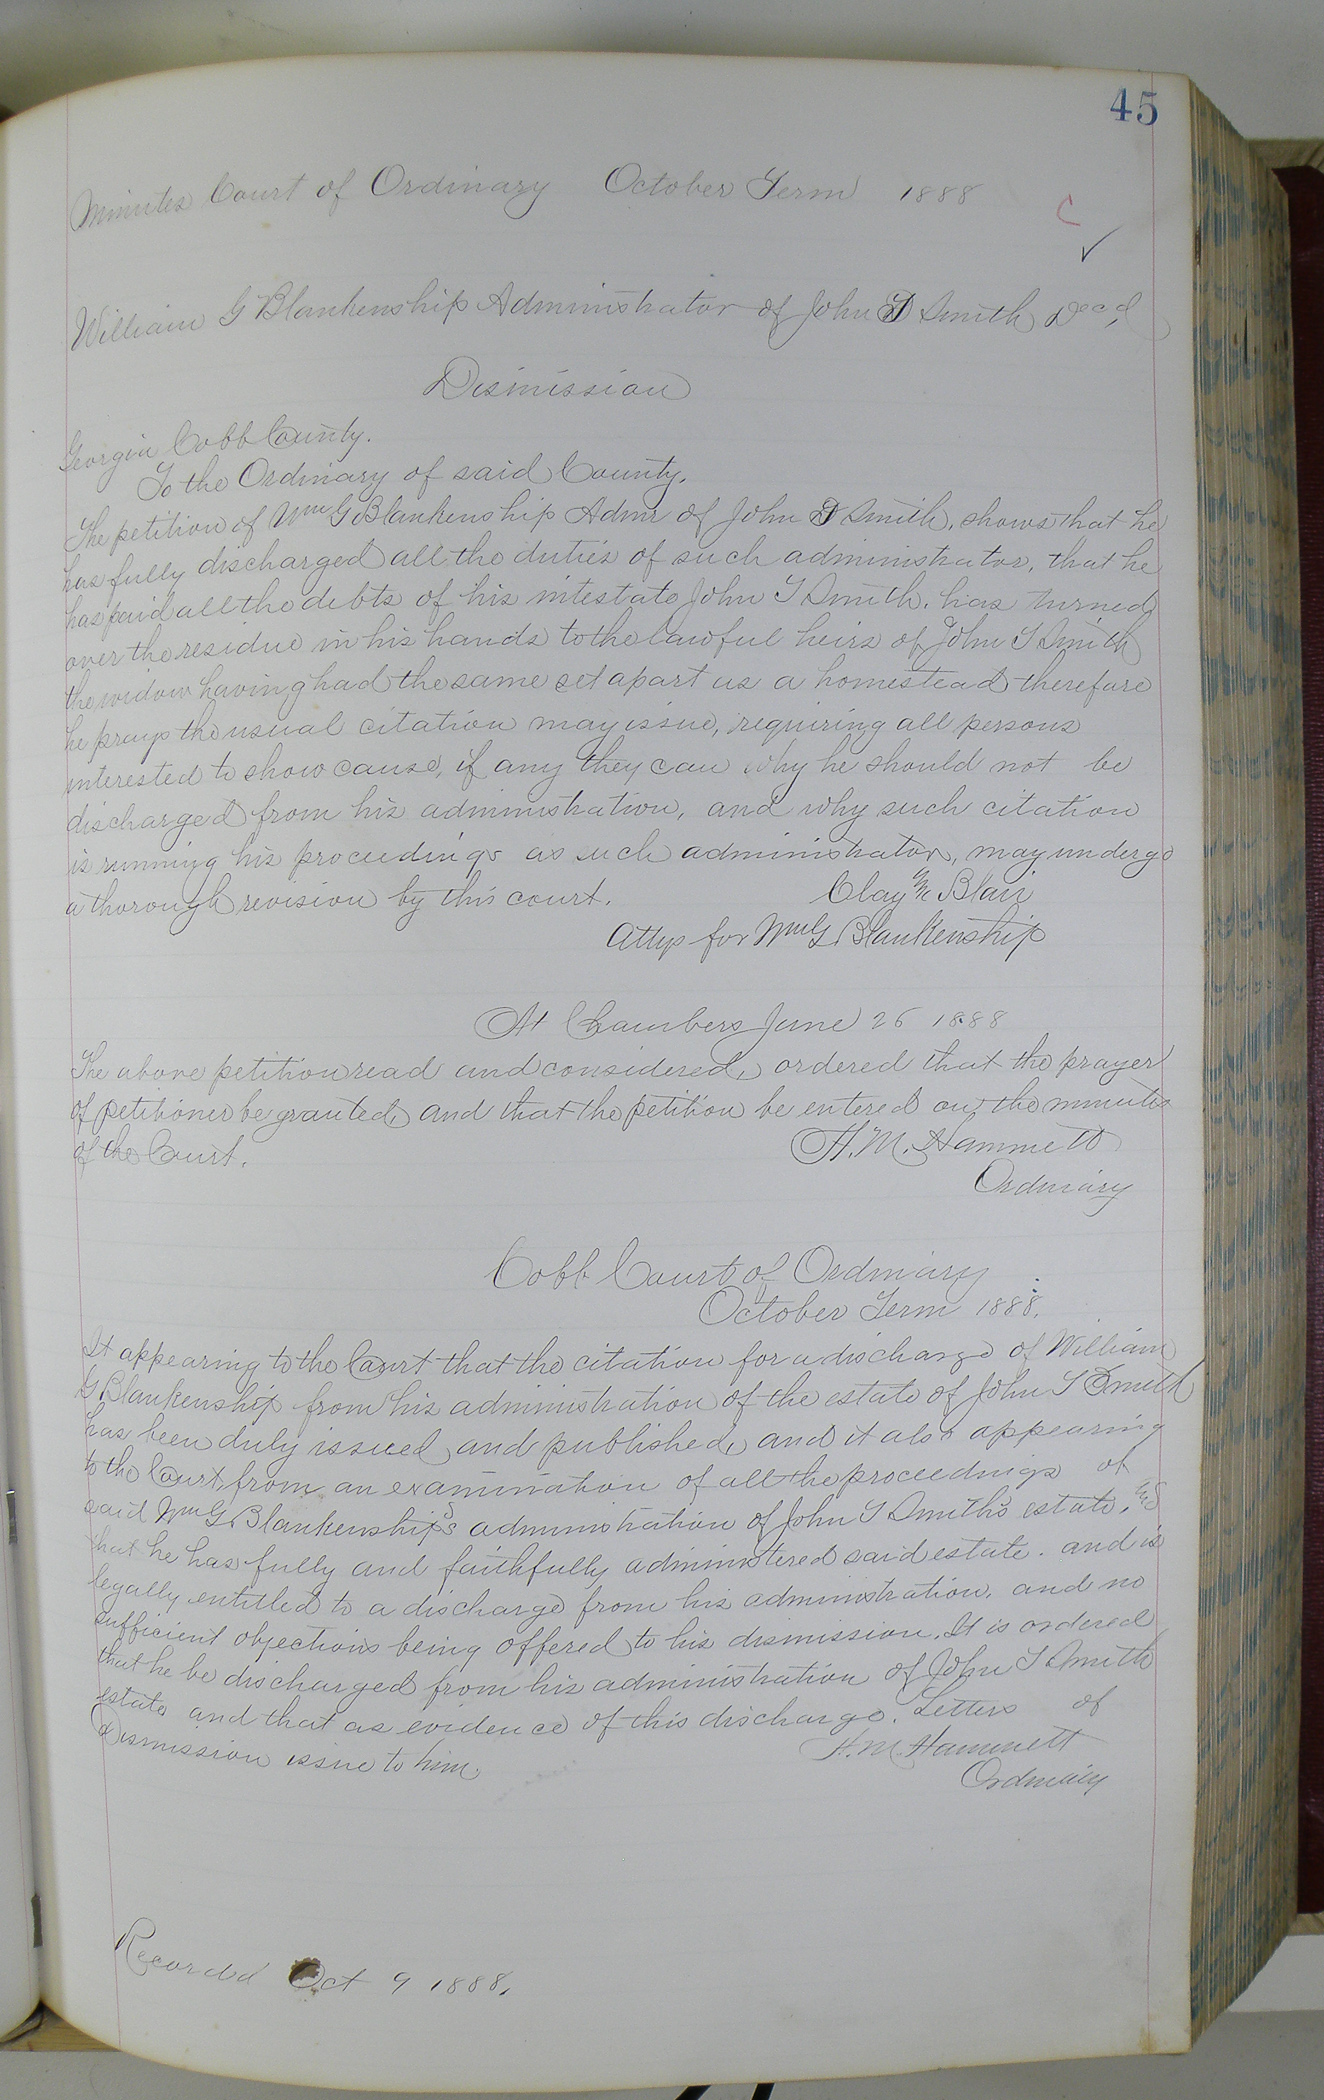 45
Minutes Court of Ordinary October Term 1888
C
✓
William G Blankenship Administrator of John T Smith Decd,
Dismission
Georgia Cobb County.
To the Ordinary of said County.
The petition of Wm G Blankenship Admr of John T Smith, shows that he
has fully discharged all the duties of such administrator, that he
has paid all the debts of his intestate John T Smith, has turned
over the residue in his hands to the lawful heirs of John T Smith
the widow having had the same set apart as a homestead therefore
he prays the usual citation may issue, requiring all persons
interested to show cause, if any they can why he should not be
discharged from his administration, and why such citation
is running his proceedings as such administrator, may undergo
a thorough revision by this court.
Clay & Blair
Attys for Wm G Blankenship
At Chambers June 26 1888
The above petition read and considered, ordered that the prayer
of petitioner be granted, and that the petition be entered on the minutes
of the Court.
H. M. Hammett
Ordinary
Cobb Court of Ordinary
October Term 1888.
It appearing to the Court that the citation for a discharge of William
G Blankenship from his administration of the estate of John T Smith
has been duly issued, and published, and it also appearing
to the Court, from an examination of all the proceedings of
said Wm G Blankenship's administration of John T Smith's estate, and
that he has fully and faithfully administered said estate. and is
legally entitled to a discharge from his administration, and no
sufficient objections being offered to his dismission. It is ordered
that he be discharged from his administration of John T Smith
estate and that as evidence of this discharge. Letters of
Dismission issue to him.
H. M. Hammett
Ordinary
Recorded Oct 9 1888.